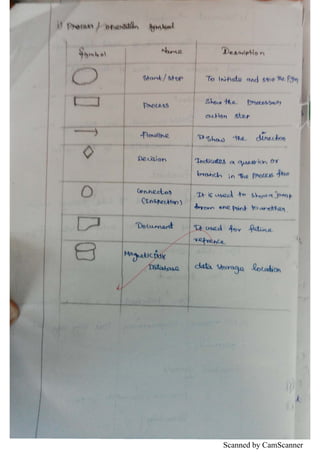 i) Process / operation symbol
Symbol Name Description
Start / stop To initiate and stop the
Process Show the processing
action step
Flowline It show the direction
Decision Indicates a question or
branch in the process flow
Connectors It is used to show a jump
(Inspection) from one point to another
Document It used for future
refrence
Magnetic disk
Database data storage location
Scanned by CamScanner